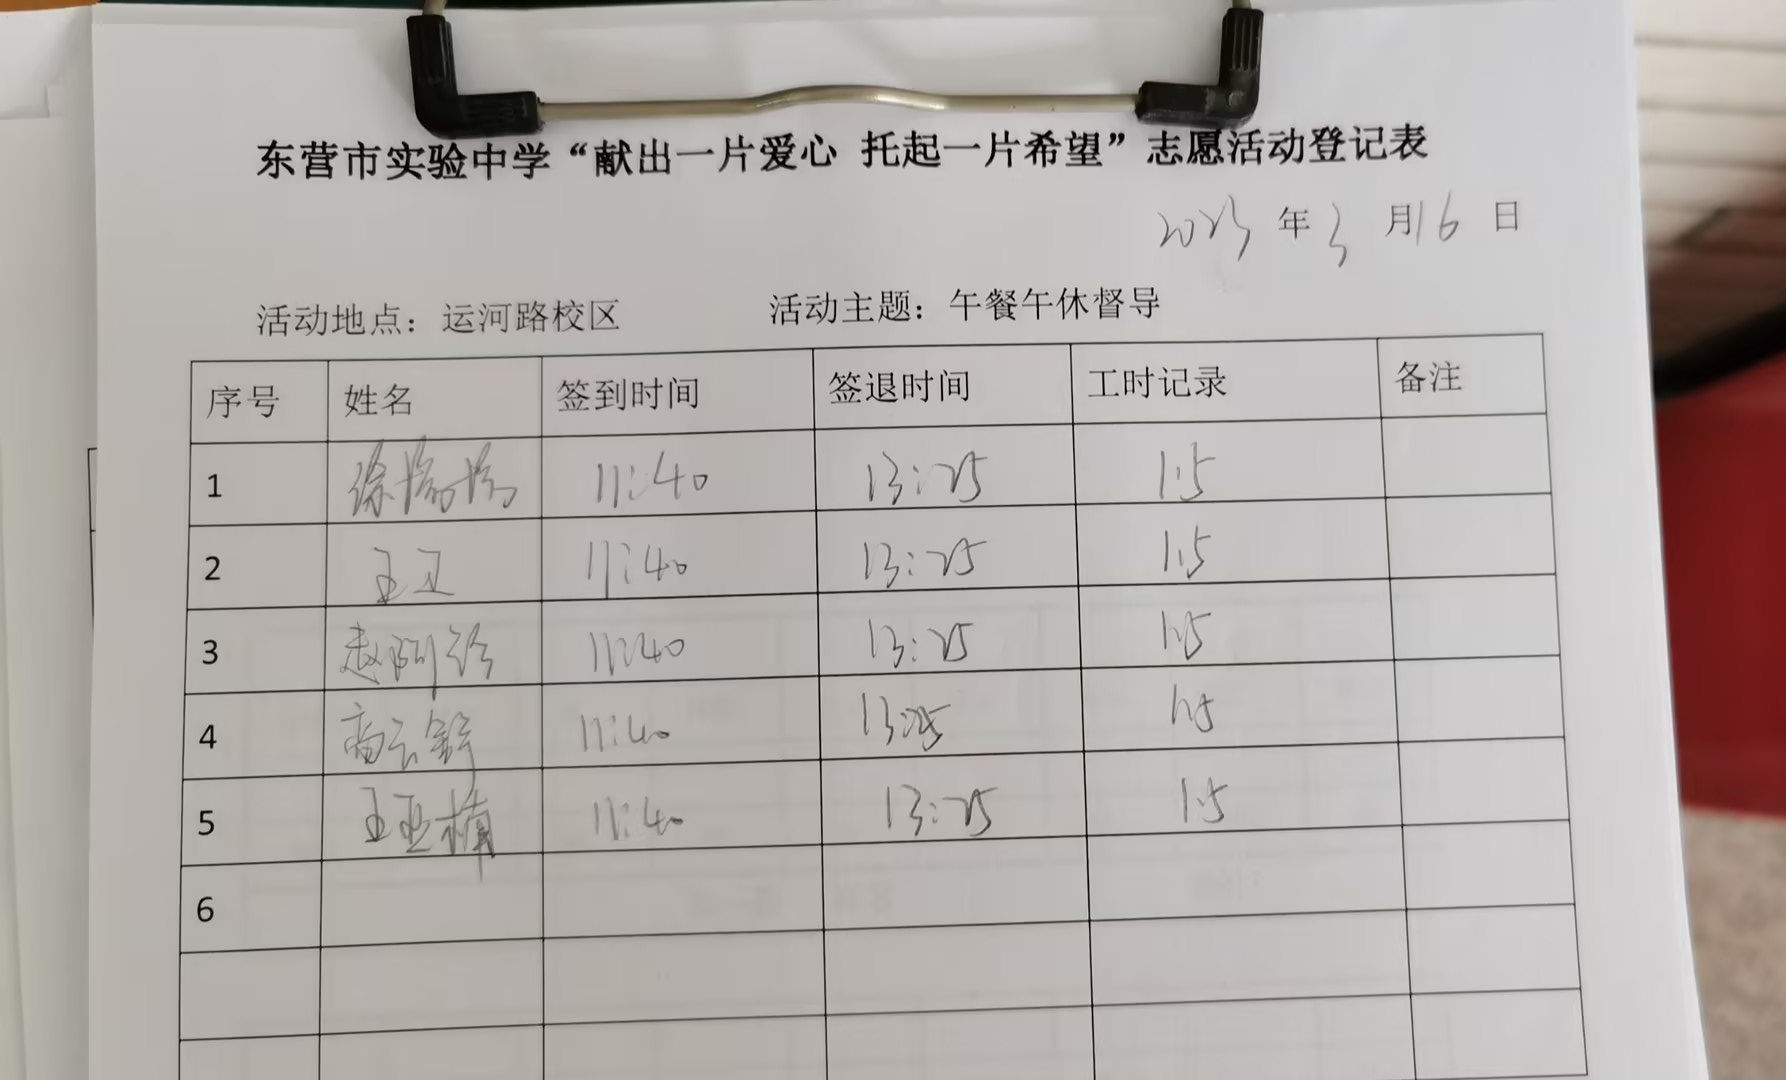 东营市实验中学“献出一片爱心 托起一片希望”志愿活动登记表
2023 年 3 月 16 日
活动地点：运河路校区 活动主题：午餐午休督导
序号 姓名 签到时间 签退时间 工时记录 备注
1 11:40 13:25 1.5
2 11:40 13:25 1.5
3 11:40 13:25 1.5
4 11:40 13:25 1.5
5 王亚楠 11:40 13:25 1.5
6